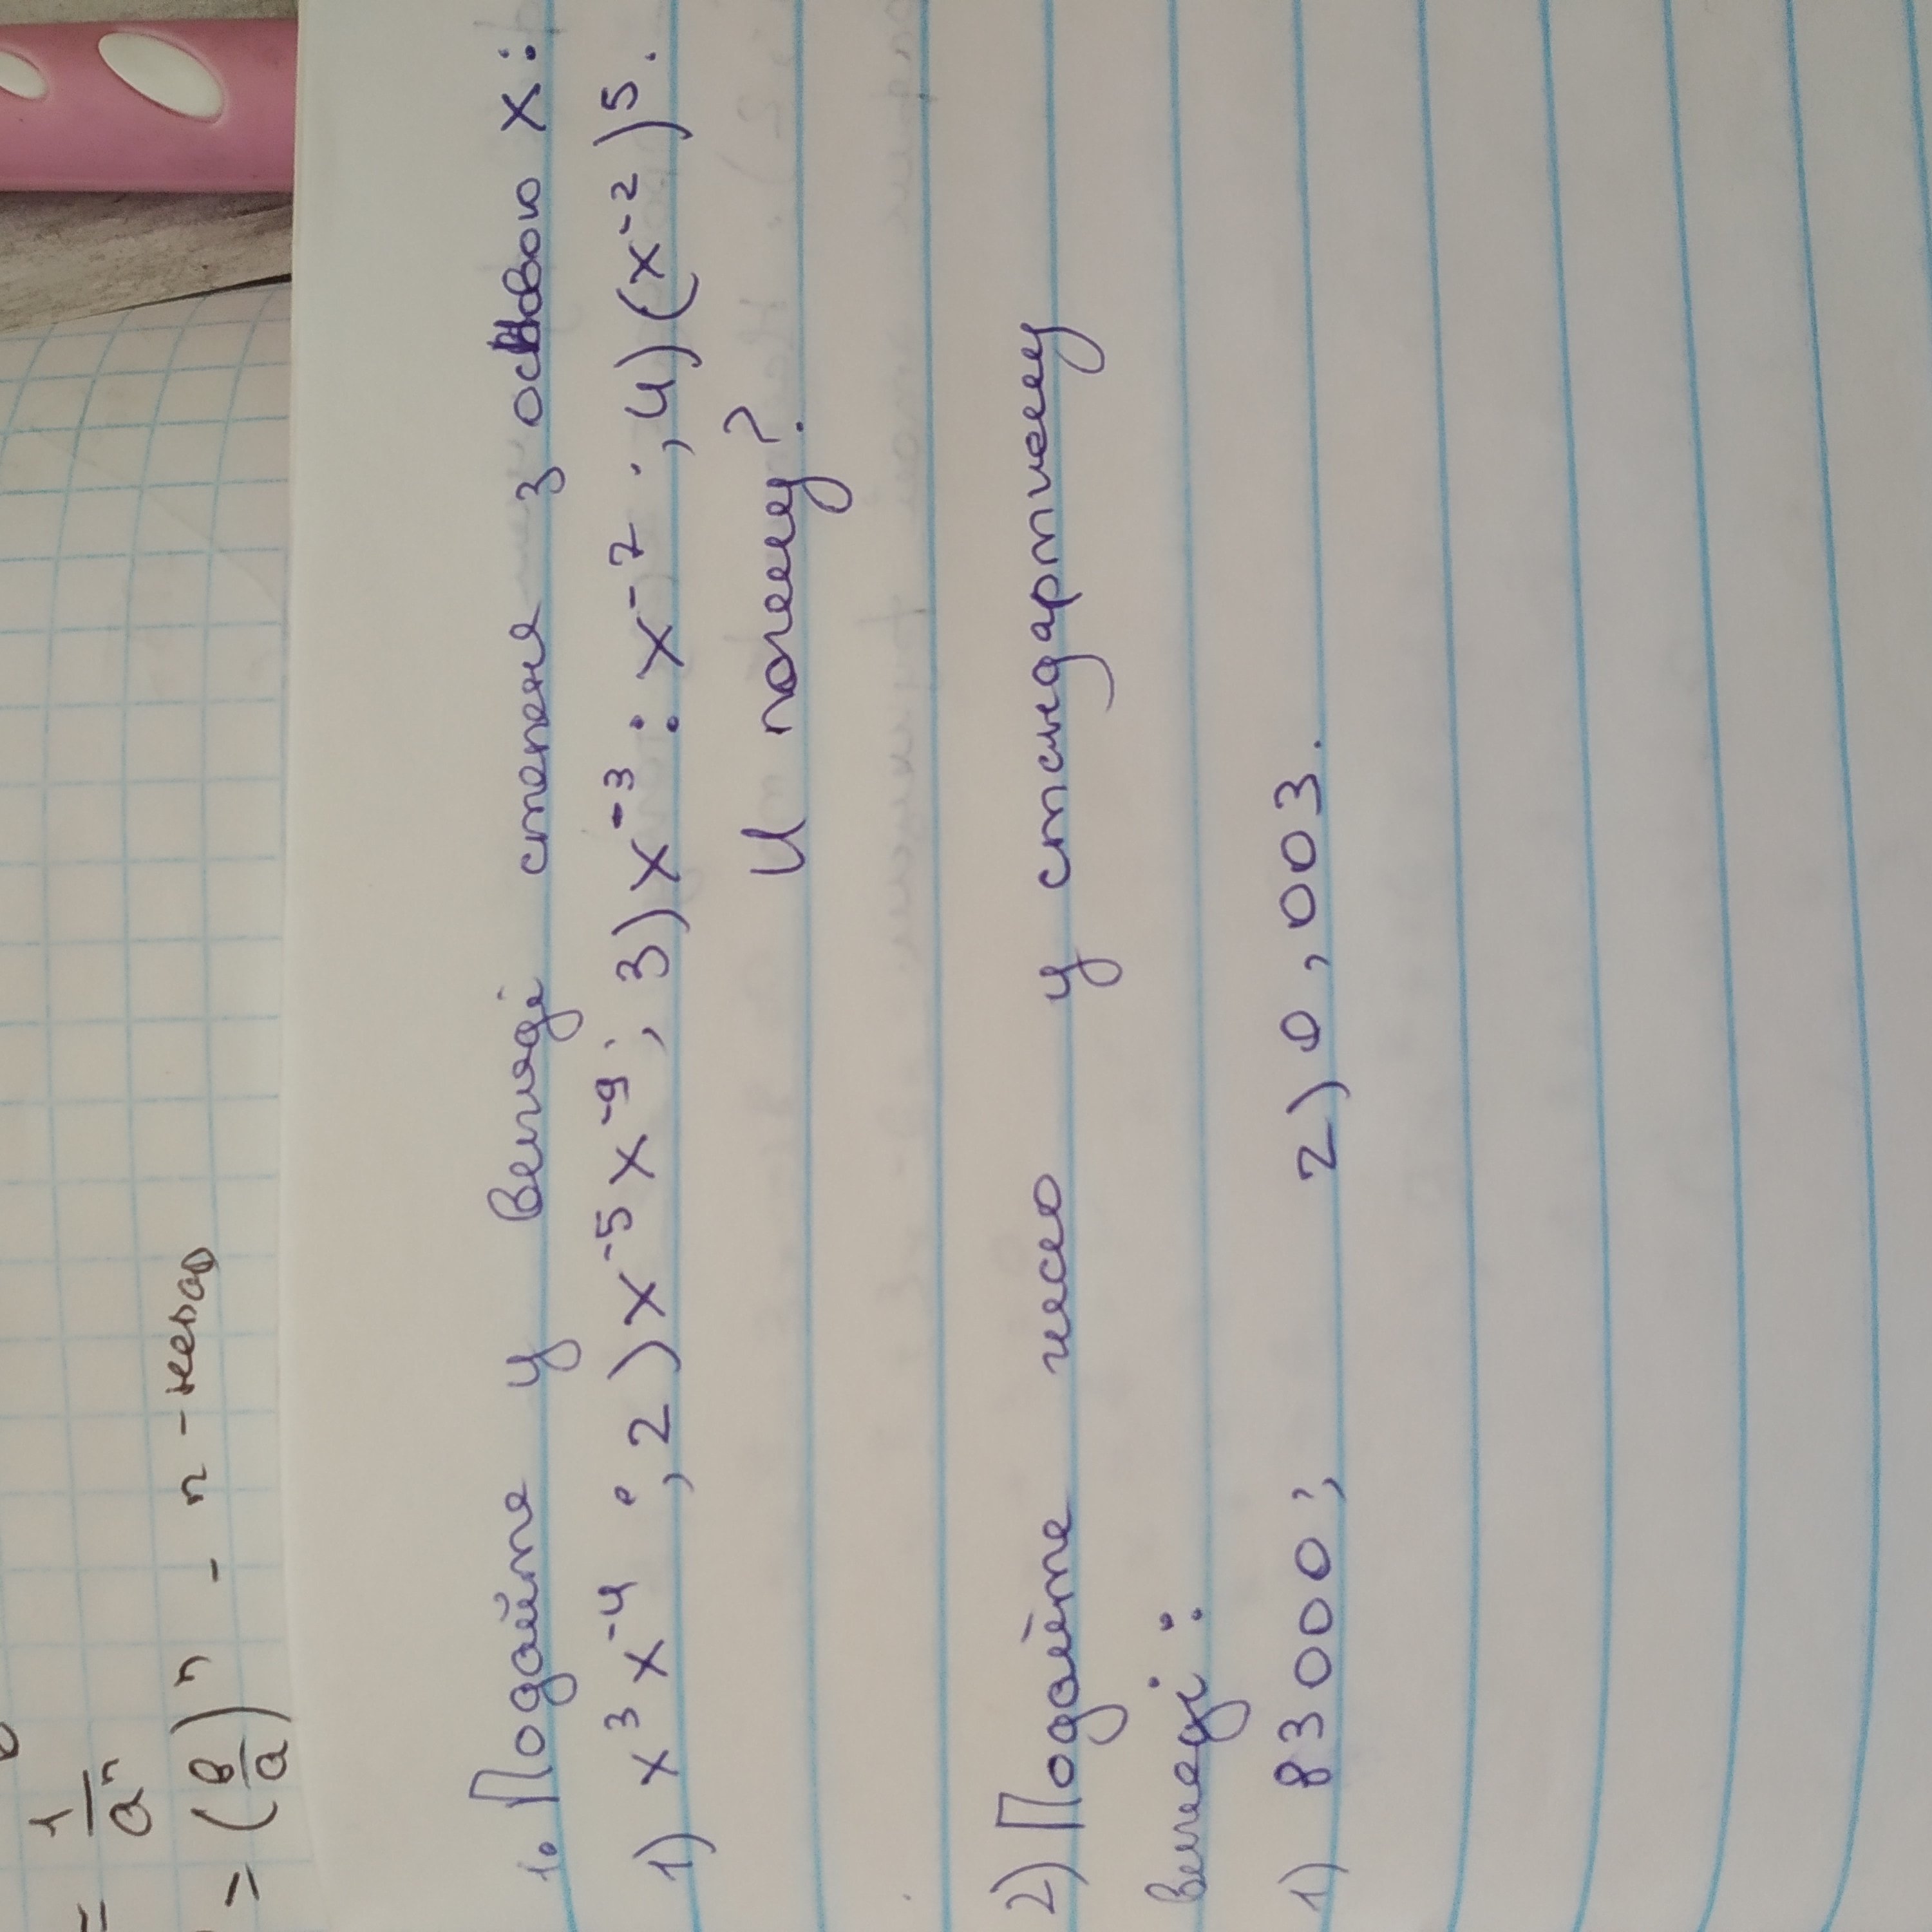 = 1/aⁿ
= (в/a)ⁿ - n - невід
1. Подайте у вигляді степеня з основою x:
1) x³x⁻⁴; 2) x⁻⁵x⁻⁹; 3) x⁻³ : x⁻⁷; 4) (x⁻²)⁵.
И почему?
2) Подайте число у стандартному
вигляді:
1) 83000; 2) 0,003.